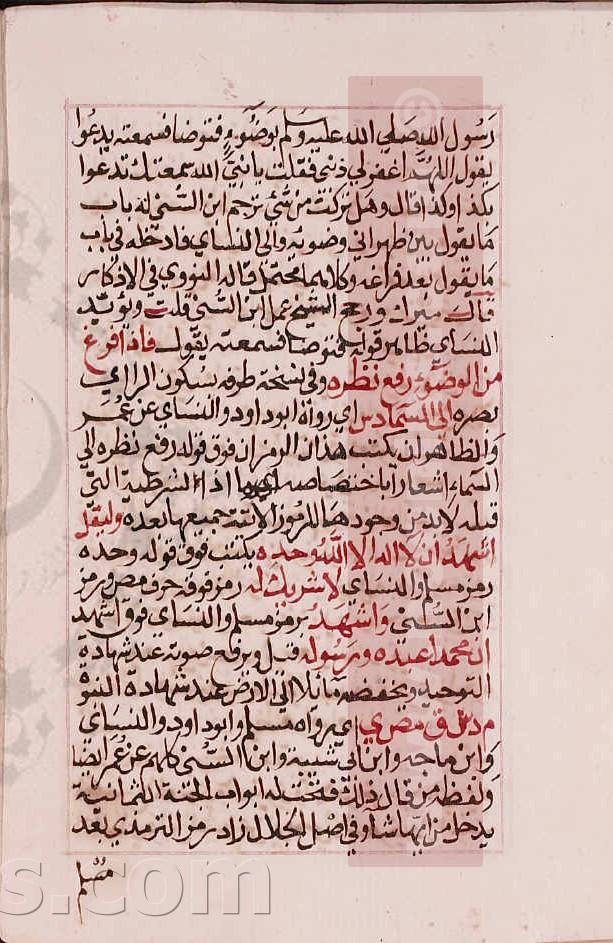 رسول الله صلي الله عليه وسلم بوضوء فتوضا فسمعته يدعوا
يقول اللهم اغفر لي ذنبي فقلت يا نبي الله سمعتك تدعوا
بكذا وكذا قال وهل تركت من شئ ترجم ابن السني له باب
ما يقول بين ظهراني وضوئه والنساي فادخله في باب
ما يقول بعد فراغه وكلاهما محتمل قاله النووي في الاذكار
قال ميرك ورجح الشيخ عمل ابن السني قلت ويؤيد
النساي ظاهر قوله فتوضا فسمعته يقول فاذا فرغ
من الوضوء رفع نظره وفي نسخة طرفه بسكون الراء اي
بصره الي السماء دس اي رواه ابو داود والنساي عن عمر
والظاهر ان يكتب هذان الرمزان فوق قوله رفع نظره الي
السماء اشعارا باختصاصه اذا الشرطية التي
قبله لابد من وجودها للرموز الاتية جميعها بعده وليقل
اشهد ان لا اله الا الله وحده يكتب فوق قوله وحده
رمز مسلم والنساي لا شريك له رمز فوقه حرف مص ورمز
ابن السني واشهد برمز مسلم والنساي فوق اشهد
ان محمدا عبده ورسوله قيل ويرفع صوته عند شهادة
التوحيد ويخفضه مائلا الي الارض عند شهادة النبوة
م د س ق مص ي اي رواه مسلم وابو داود والنساي
وابن ماجه وابن ابي شيبة وابن السني كلهم عن عمر ايضا
ولفظه من قال ذلك فتحت له ابواب الجنة الثمانية
يدخل من ايها شا وفي اصل الجلال زاد رمز الترمذي بعد
مسلم
s.com